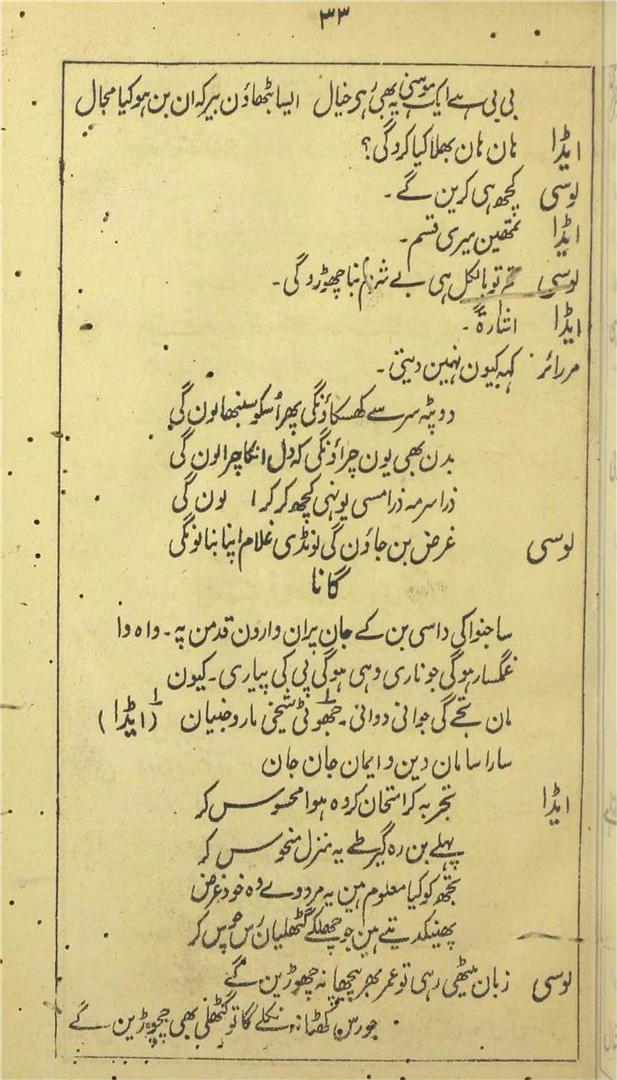 ۳۳
بی بی سے ایک موسنی پہ بھی رہی خیال ایسا بٹھاؤن بیر کہ ان بن ہو کیا مجال
ایڈا ہان ہان بھلا کیا کروگی؟
لوسی کچھ ہی کرین گے۔
ایڈا تمھین میری قسم۔
لوسی تم تو بالکل ہی بے شرم بنا چھوڑوگی۔
ایڈا اشارۃً۔
مررائر کہہ کیون نہین دیتی۔
دوپٹہ سر سے کھسکاؤنگی پھر اُسکو سنبھالون گی
بدن بھی یون چراؤنگی کہ دل انکا چرالون گی
ذرا سرمہ ذرا مسی یونہی کچھ کر کرا لون گی
لوسی غرض بن جاؤن گی لونڈی غلام اپنا بنالونگی
گانا
ساجنوا کی داسی بن کے جان پران وارون قدمن پہ۔ واہ وا
غمگسار ہوگی جو ناری وہی ہوگی پی کی پیاری۔ کیون
مان تجے گی جوانی دوانی۔ جھوٹی شیخی مارو جنیان (ایڈا)
سارا سامان دین و ایمان جان جان
ایڈا تجربہ کر امتحان کر وہ ہوا محسوس کر
پہلے بن رہ گیر طے یہ منزل منحوس کر
تجھ کو کیا معلوم ہین یہ مردوے وہ خود غرض
پھینکدیتے ہین جو چھلکے گٹھلیان رس چوس کر
لوسی زبان میٹھی رہی تو عمر بھر پیچھا نہ چھوڑین گے
جو رس کھٹا نہ نکلے گا تو گٹھلی بھی نچوڑین گے